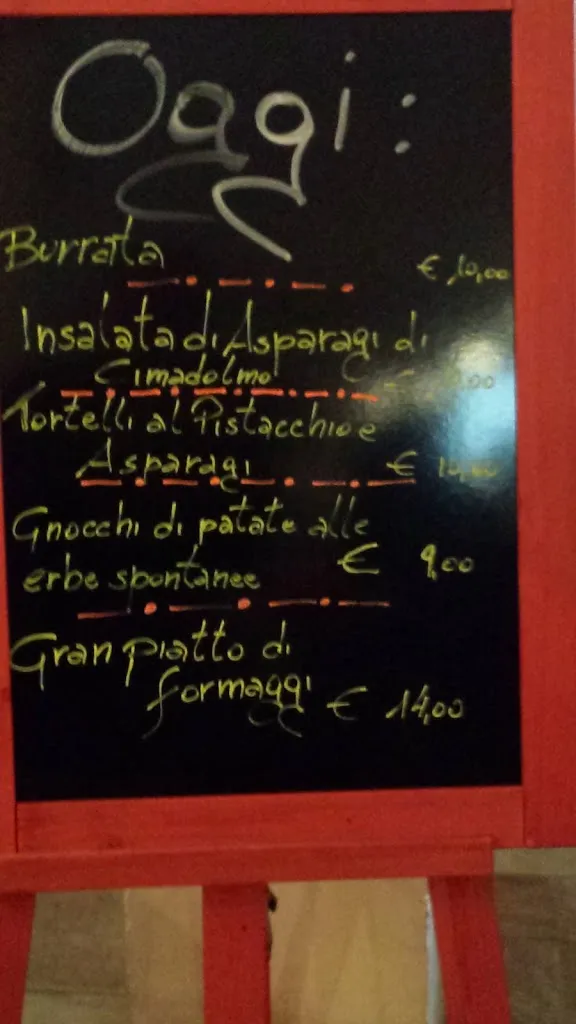 Oggi:
Burrata € 10,00
Insalata di Asparagi di
Cimadolmo €
Tortelli al Pistacchio e
Asparagi € 10,00
Gnocchi di patate alle
erbe spontanee € 9,00
Gran piatto di
formaggi € 14,00